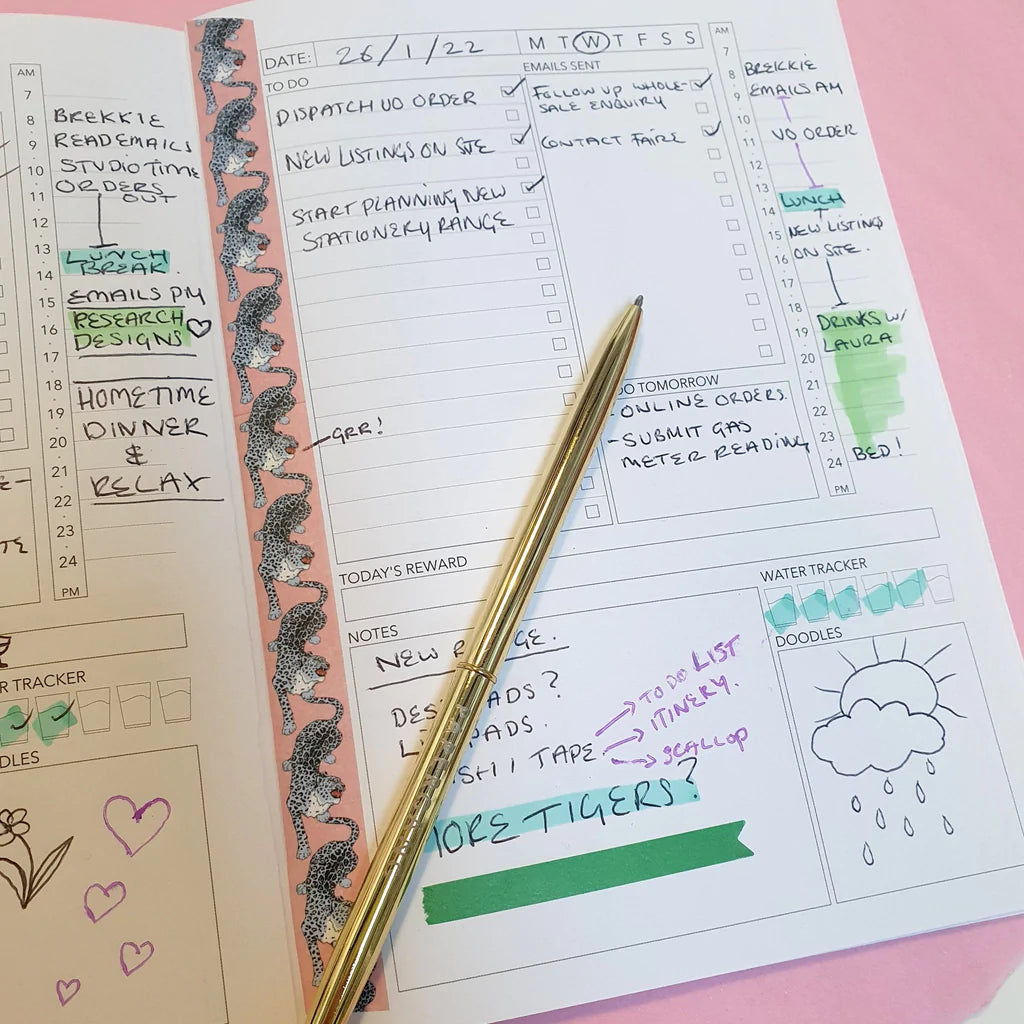 AM
7
8
9
10
11
12
13
14
15
16
17
18
19
20
21
22
23
24
PM
BREKKIE
READ EMAILS
STUDIO TIME
ORDERS
OUT
LUNCH
BREAK.
EMAILS PM
RESEARCH
DESIGNS
HOMETIME
DINNER
&
RELAX
R TRACKER
DLES
DATE: 26/1/22 M T W T F S S
TO DO
DISPATCH UO ORDER
NEW LISTINGS ON SITE
START PLANNING NEW
STATIONERY RANGE
GRR!
EMAILS SENT
FOLLOW UP WHOLE-
SALE ENQUIRY
CONTACT FAIRE
DO TOMORROW
- ONLINE ORDERS.
- SUBMIT GAS
METER READING
AM
7
8
9
10
11
12
13
14
15
16
17
18
19
20
21
22
23
24
PM
BREKKIE
EMAILS AM
UO ORDER
LUNCH
NEW LISTINGS
ON SITE.
DRINKS W/
LAURA
BED!
TODAY'S REWARD
WATER TRACKER
NOTES
NEW
DES PADS?
PADS.
SHI TAPE
TO DO LIST
ITINERY.
SCALLOP
MORE TIGERS?
DOODLES